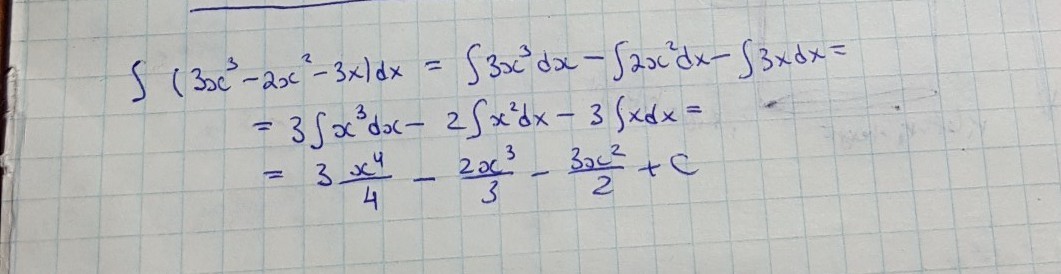 ∫ (3x³ - 2x² - 3x)dx = ∫3x³dx - ∫2x²dx - ∫3xdx =
= 3∫x³dx - 2∫x²dx - 3∫xdx =
= 3 x⁴/4 - 2x³/3 - 3x²/2 + C